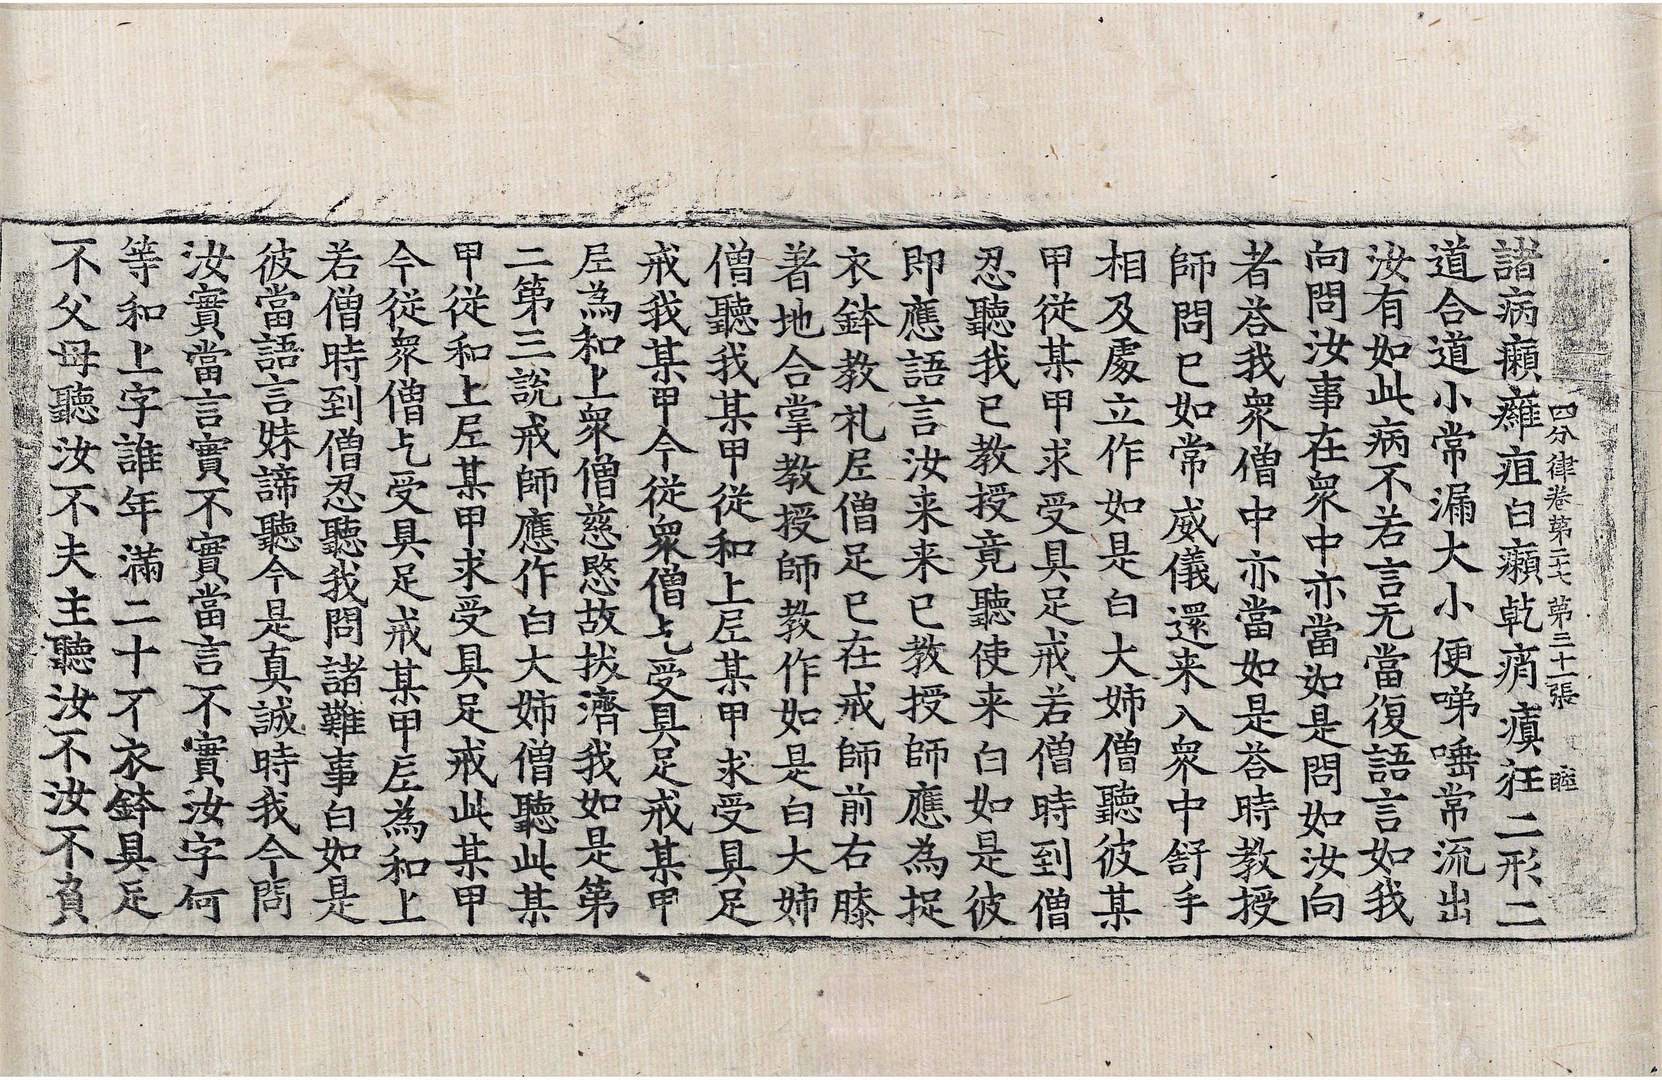 四分律卷苐二十七 苐三十一張 睦
諸病癩癰疽白癩乹痟瘨狂二形二
道合道小常漏大小便㖒唾常流出
汝有如此病不若言无當復語言如我
向問汝事在衆中亦當如是問如汝向
者荅我衆僧中亦當如是荅時教授
師問已如常威儀還来入衆中舒手
相及處立作如是白大姉僧聽彼某
甲從某甲求受具足戒若僧時到僧
忍聽我已教授竟聽使来白如是彼
即應語言汝来来已教授師應為捉
衣鉢教礼尼僧足已在戒師前右膝
著地合掌教授師教作如是白大姉
僧聽我某甲從和上尼某甲求受具足
戒我某甲今從衆僧乞受具足戒某甲
尼為和上衆僧慈愍故拔濟我如是第
二第三說戒師應作白大姉僧聽此某
甲從和上尼某甲求受具足戒此某甲
今從衆僧乞受具足戒某甲尼為和上
若僧時到僧忍聽我問諸難事白如是
彼當語言妹諦聽今是真誠時我今問
汝實當言實不實當言不實汝字何
等和上字誰年滿二十不衣鉢具足
不父母聽汝不夫主聽汝不汝不負